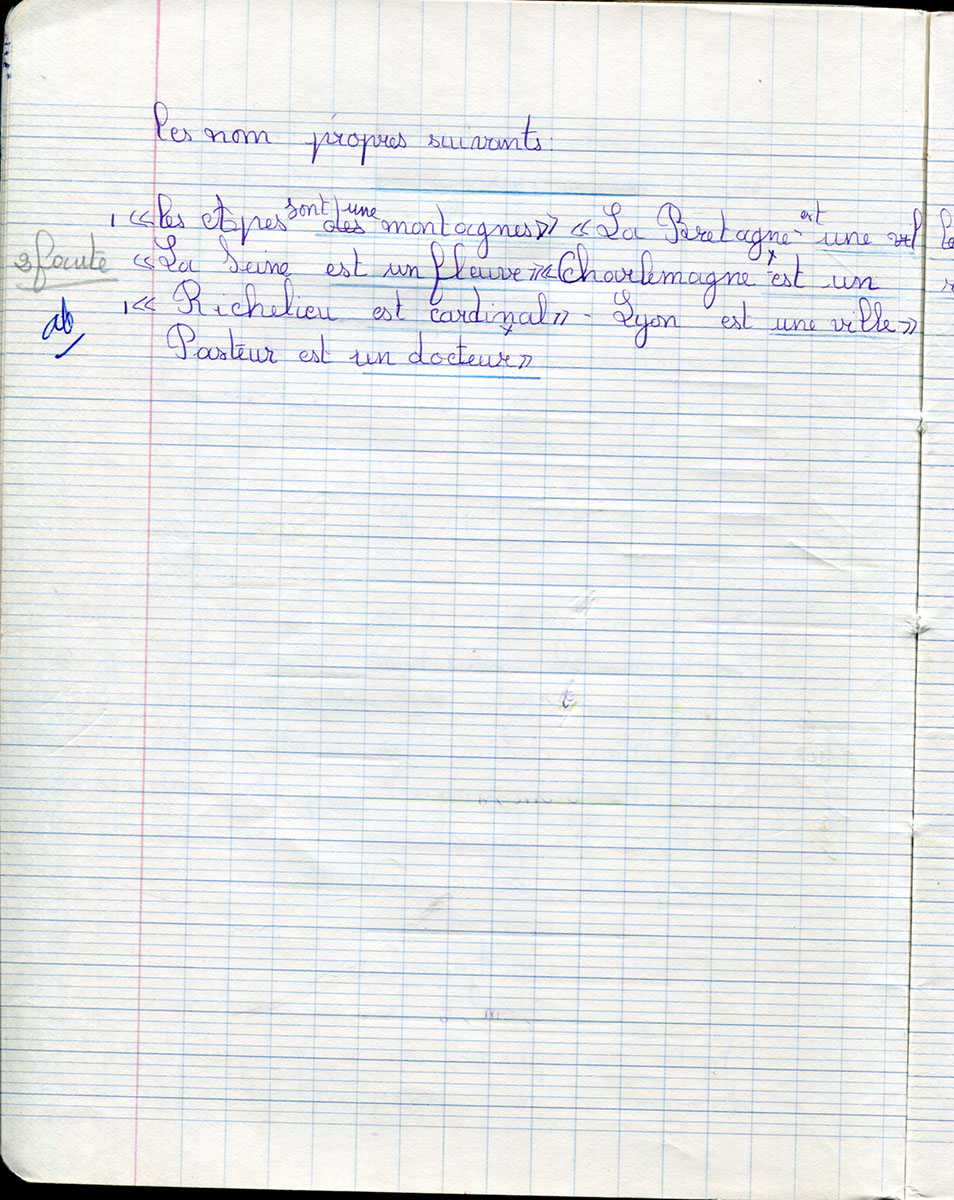 les nom propres suivants:
sont une
«les etpes des montagnes» «La Bretagne est une vil
3 faute «La Seine est un fleuve» «Charlemagne est un
ab « Richelieu est cardinal» - Lyon est une ville»
Pasteur est un docteur»
t